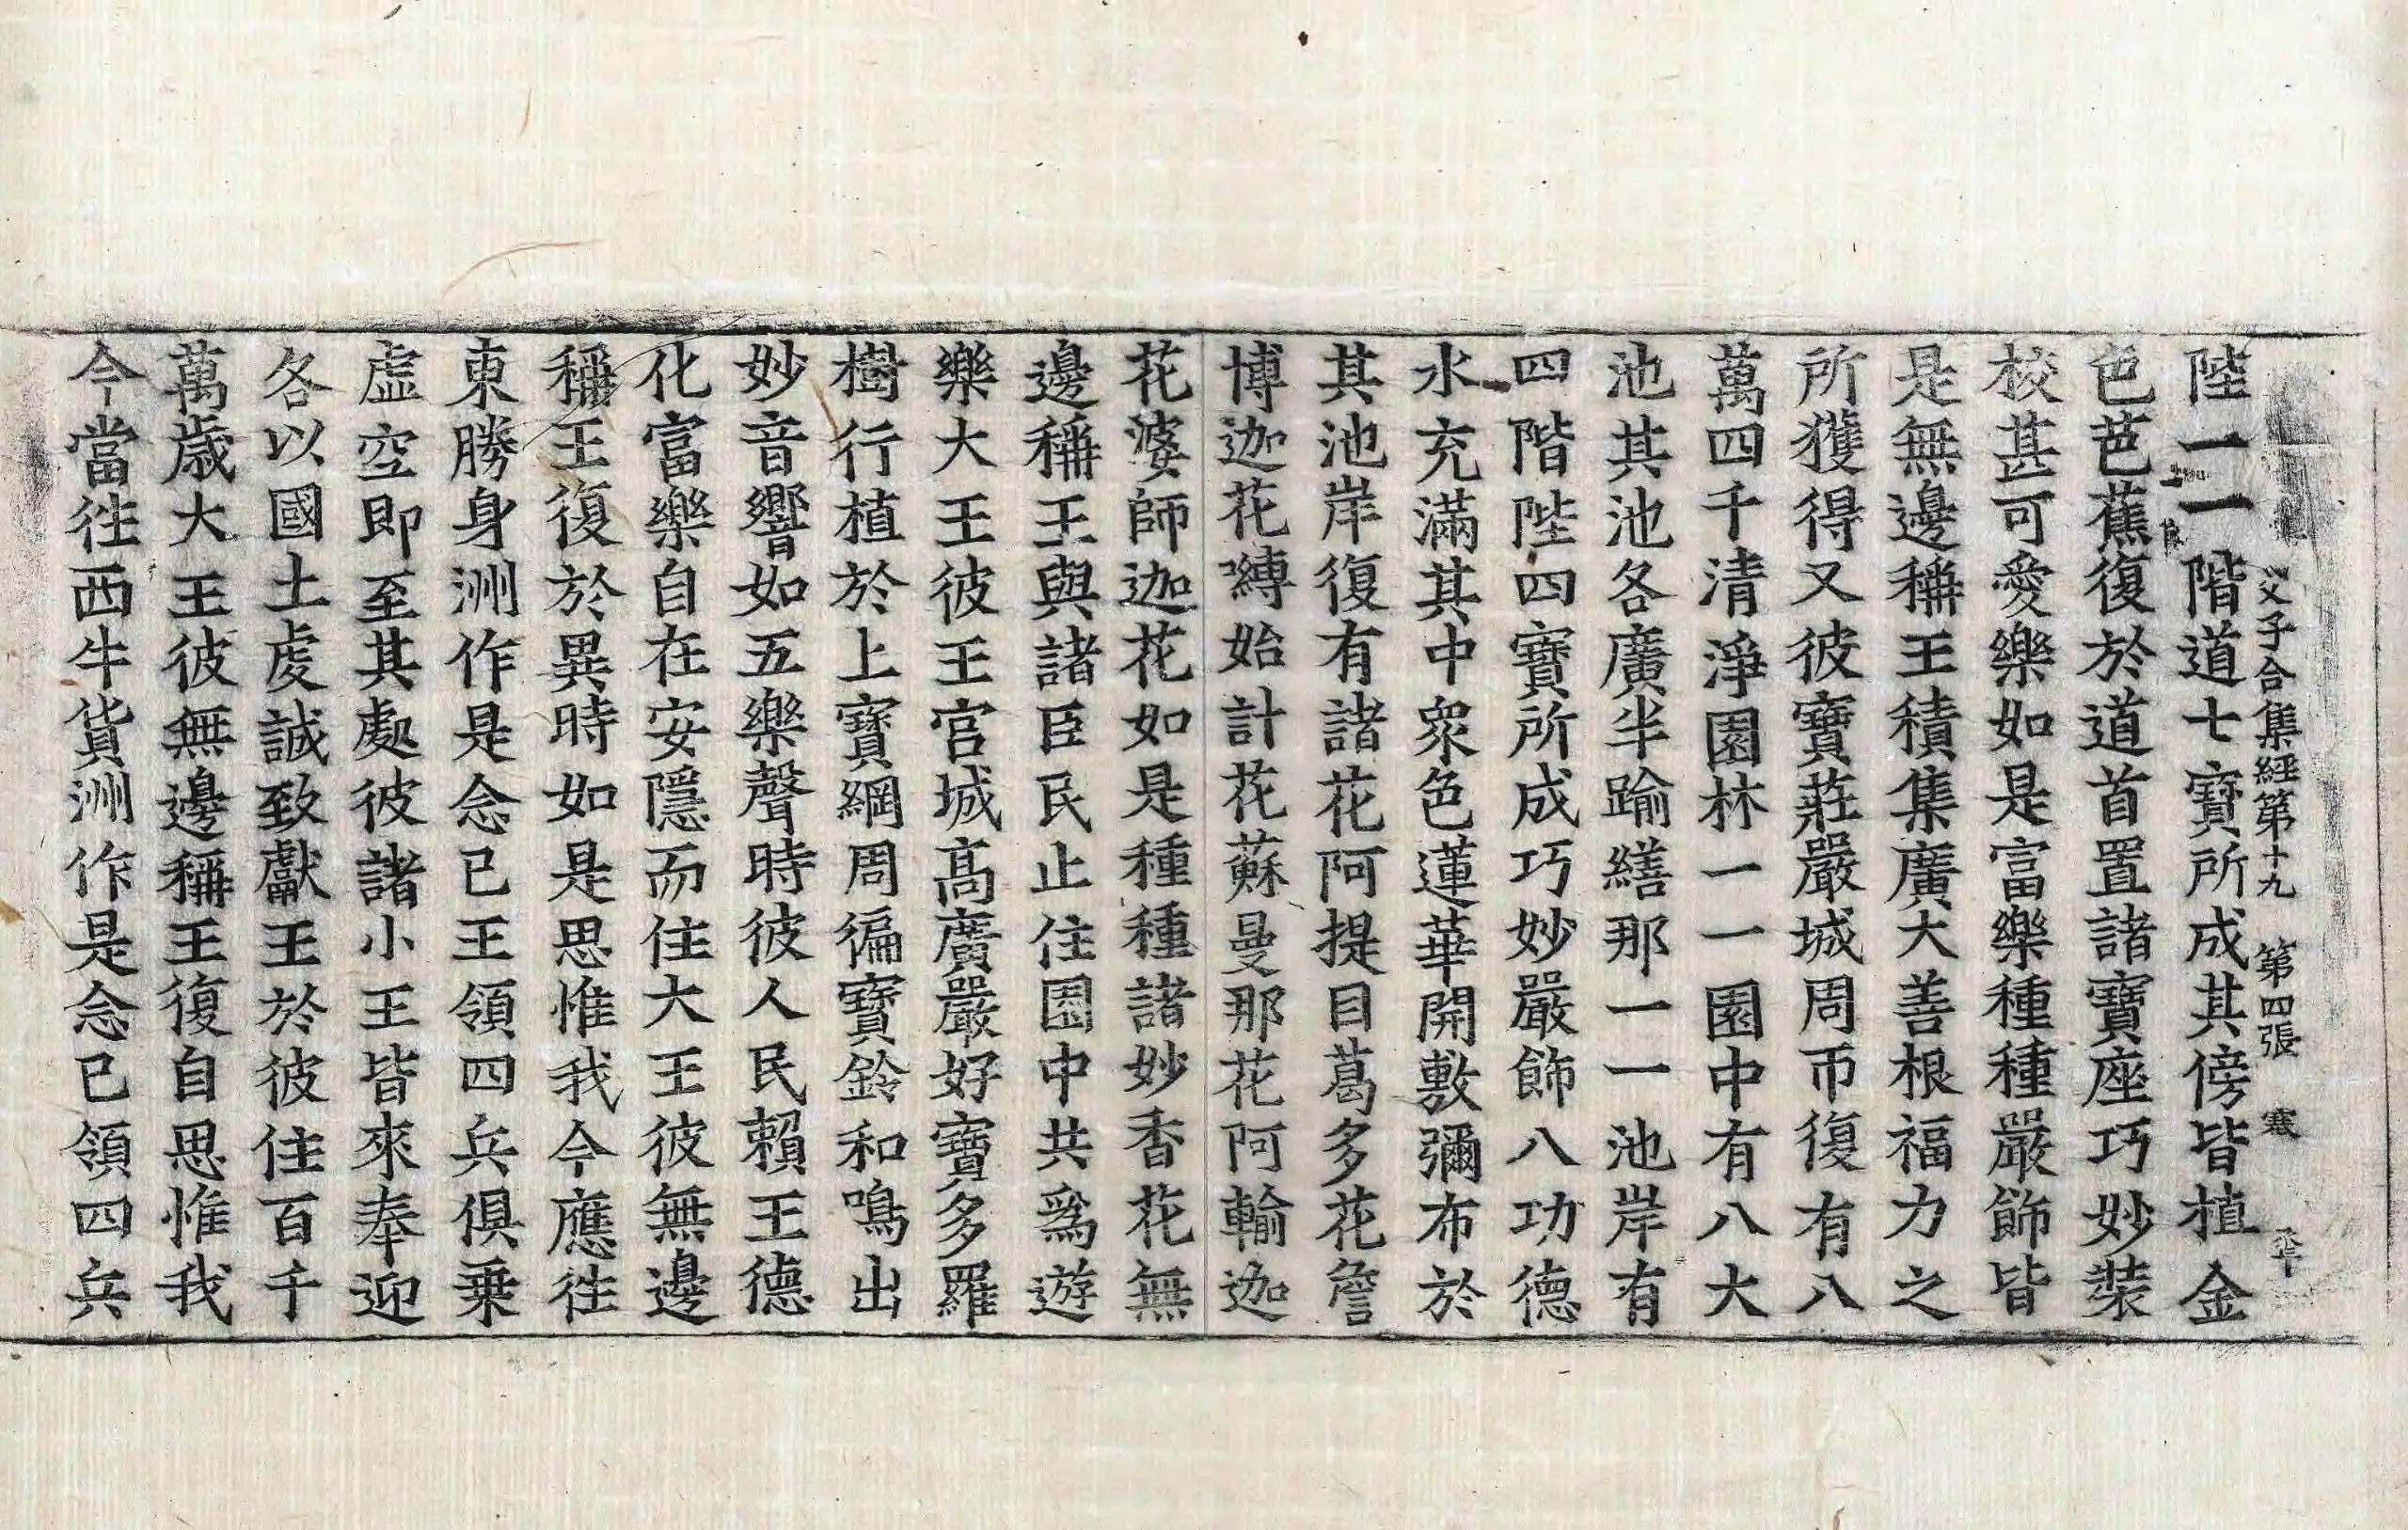 父子合集經第十九 第四張 寒
陛一一階道七寶所成其傍皆植金
色芭蕉復於道首置諸寶座巧妙裝
校甚可愛樂如是富樂種種嚴飾皆
是無邊稱王積集廣大善根福力之
所獲得又彼寶莊嚴城周帀復有八
萬四千清淨園林一一園中有八大
池其池各廣半踰繕那一一池岸有
四階陛四寶所成巧妙嚴飾八功德
水充滿其中衆色蓮華開敷彌布於
其池岸復有諸花阿提目葛多花詹
博迦花嚩始計花蘇曼那花阿輸迦
花婆師迦花如是種種諸妙香花無
邊稱王與諸臣民止住園中共爲遊
樂大王彼王宮城高廣嚴好寶多羅
樹行植於上寶網周徧寶鈴和鳴出
妙音響如五樂聲時彼人民賴王德
化富樂自在安隱而住大王彼無邊
稱王復於異時如是思惟我今應往
東勝身洲作是念已王領四兵俱乗
虛空即至其處彼諸小王皆來奉迎
各以國土虔誠致獻王於彼住百千
萬歲大王彼無邊稱王復自思惟我
今當往西牛貨洲作是念已領四兵